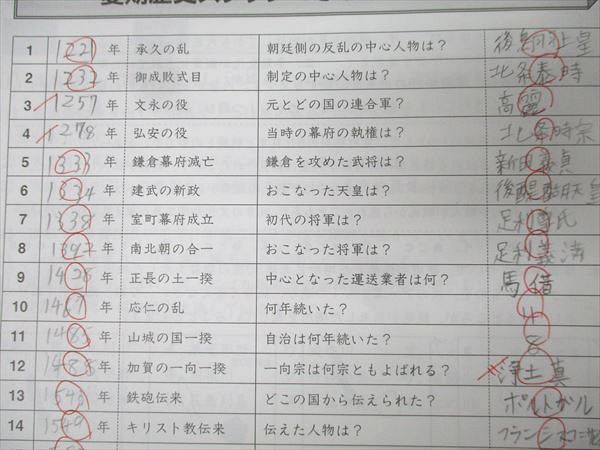 1 1221年 承久の乱 朝廷側の反乱の中心人物は? 後鳥羽上皇
2 1232年 御成敗式目 制定の中心人物は? 北条泰時
3 1257年 文永の役 元とどの国の連合軍? 高麗
4 1278年 弘安の役 当時の幕府の執権は? 北条時宗
5 1333年 鎌倉幕府滅亡 鎌倉を攻めた武将は? 新田義真
6 1334年 建武の新政 おこなった天皇は? 後醍醐天皇
7 1338年 室町幕府成立 初代の将軍は? 足利尊氏
8 1392年 南北朝の合一 おこなった将軍は? 足利義満
9 1428年 正長の土一揆 中心となった運送業者は何? 馬借
10 1467年 応仁の乱 何年続いた?
11 1485年 山城の国一揆 自治は何年続いた? 8
12 1488年 加賀の一向一揆 一向宗は何宗ともよばれる? 浄土真
13 1543年 鉄砲伝来 どこの国から伝えられた? ポルトガル
14 1549年 キリスト教伝来 伝えた人物は?